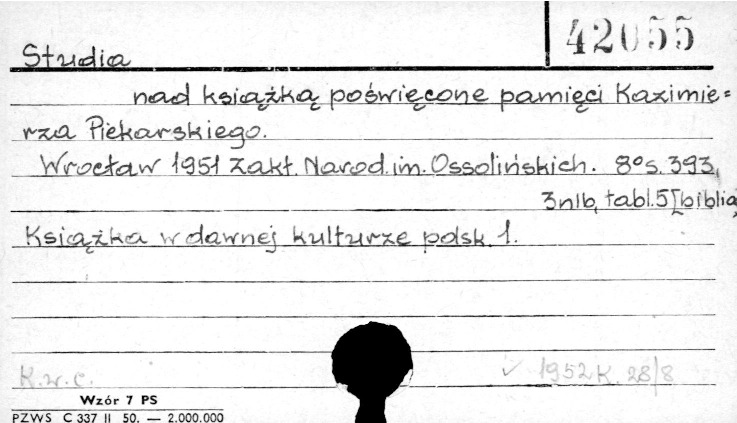 42055
Studia
nad książką poświęcone pamięci Kazimie=
rza Piekarskiego.
Wrocław 1951 Zakł. Narod. im. Ossolińskich. 8° s. 393,
3nlb, tabl. 5 [biblia]
Książka w dawnej kulturze polsk. 1.
K.w.c.
✓ 1952 K. 28/8
Wzór 7 PS
PZWS C 337 II 50. — 2.000.000